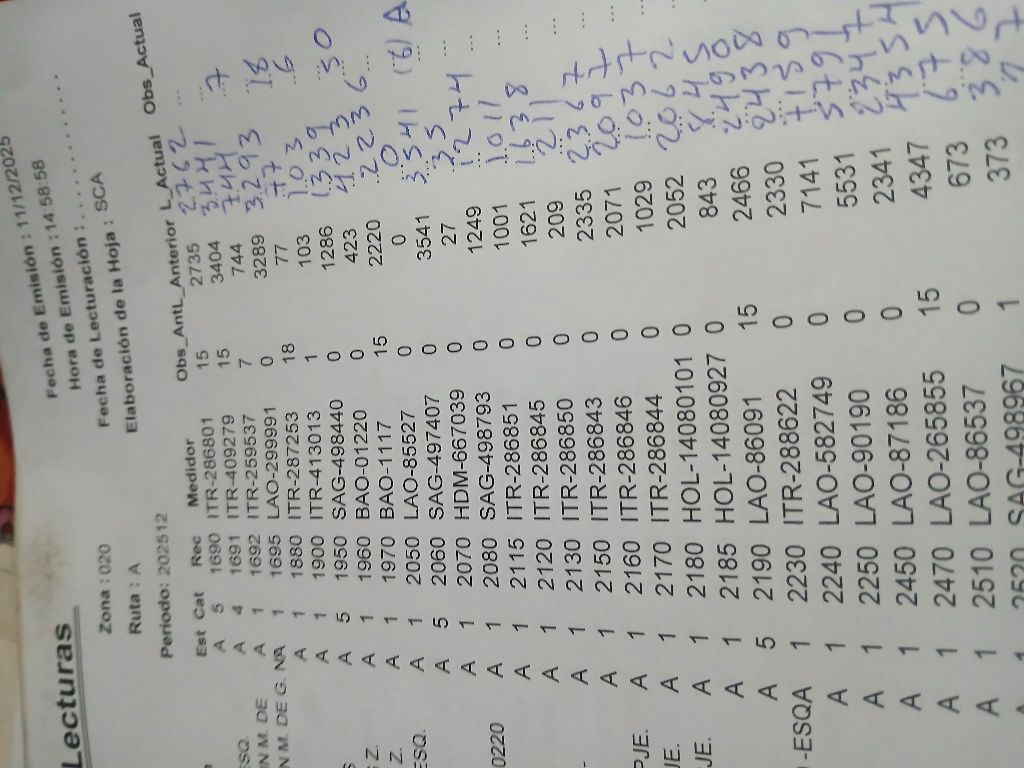 Lecturas
Fecha de Emisión : 11/12/2025
Hora de Emisión : 14:58:58
Zona : 020
Fecha de Lecturación : ..........
Ruta : A
Elaboración de la Hoja : SCA
Periodo: 202512
Est Cat Rec Medidor Obs_AntL_Anterior L_Actual Obs_Actual
A 5 1690 ITR-286801 15 2735 2762
ESQ. A 4 1691 ITR-409279 15 3404 3441
N M. DE A 1 1692 ITR-259537 7 744 744 7
N M. DE G. NA 1 1695 LAO-299991 0 3289 3293
A 1 1880 ITR-287253 18 77 77 18
A 1 1900 ITR-413013 1 103 103 6
A 5 1950 SAG-498440 0 1286 1339
Z. A 1 1960 BAO-01220 0 423 423
Z. A 1 1970 BAO-1117 15 2220 2236
ESQ. A 1 2050 LAO-85527 0 0 0
A 5 2060 SAG-497407 0 3541 3541
A 1 2070 HDM-667039 0 27 35
0220 A 1 2080 SAG-498793 0 1249 1274
A 1 2115 ITR-286851 0 1001 1011
A 1 2120 ITR-286845 0 1621 1638
A 1 2130 ITR-286850 0 209 211
A 1 2150 ITR-286843 0 2335 2367
PJE. A 1 2160 ITR-286846 0 2071 2097
JE. A 1 2170 ITR-286844 0 1029 1037
PJE. A 1 2180 HOL-14080101 0 2052 2062
A 1 2185 HOL-14080927 0 843 845
A 5 2190 LAO-86091 15 2466 2490
- ESQA A 1 2230 ITR-288622 0 2330 2438
A 1 2240 LAO-582749 0 7141 7159
A 1 2250 LAO-90190 0 5531 5791
A 1 2450 LAO-87186 0 2341 2347
A 1 2470 LAO-265855 15 4347 4354
A 1 2510 LAO-86537 0 673 675
1 2520 SAG-498967 1 373 386